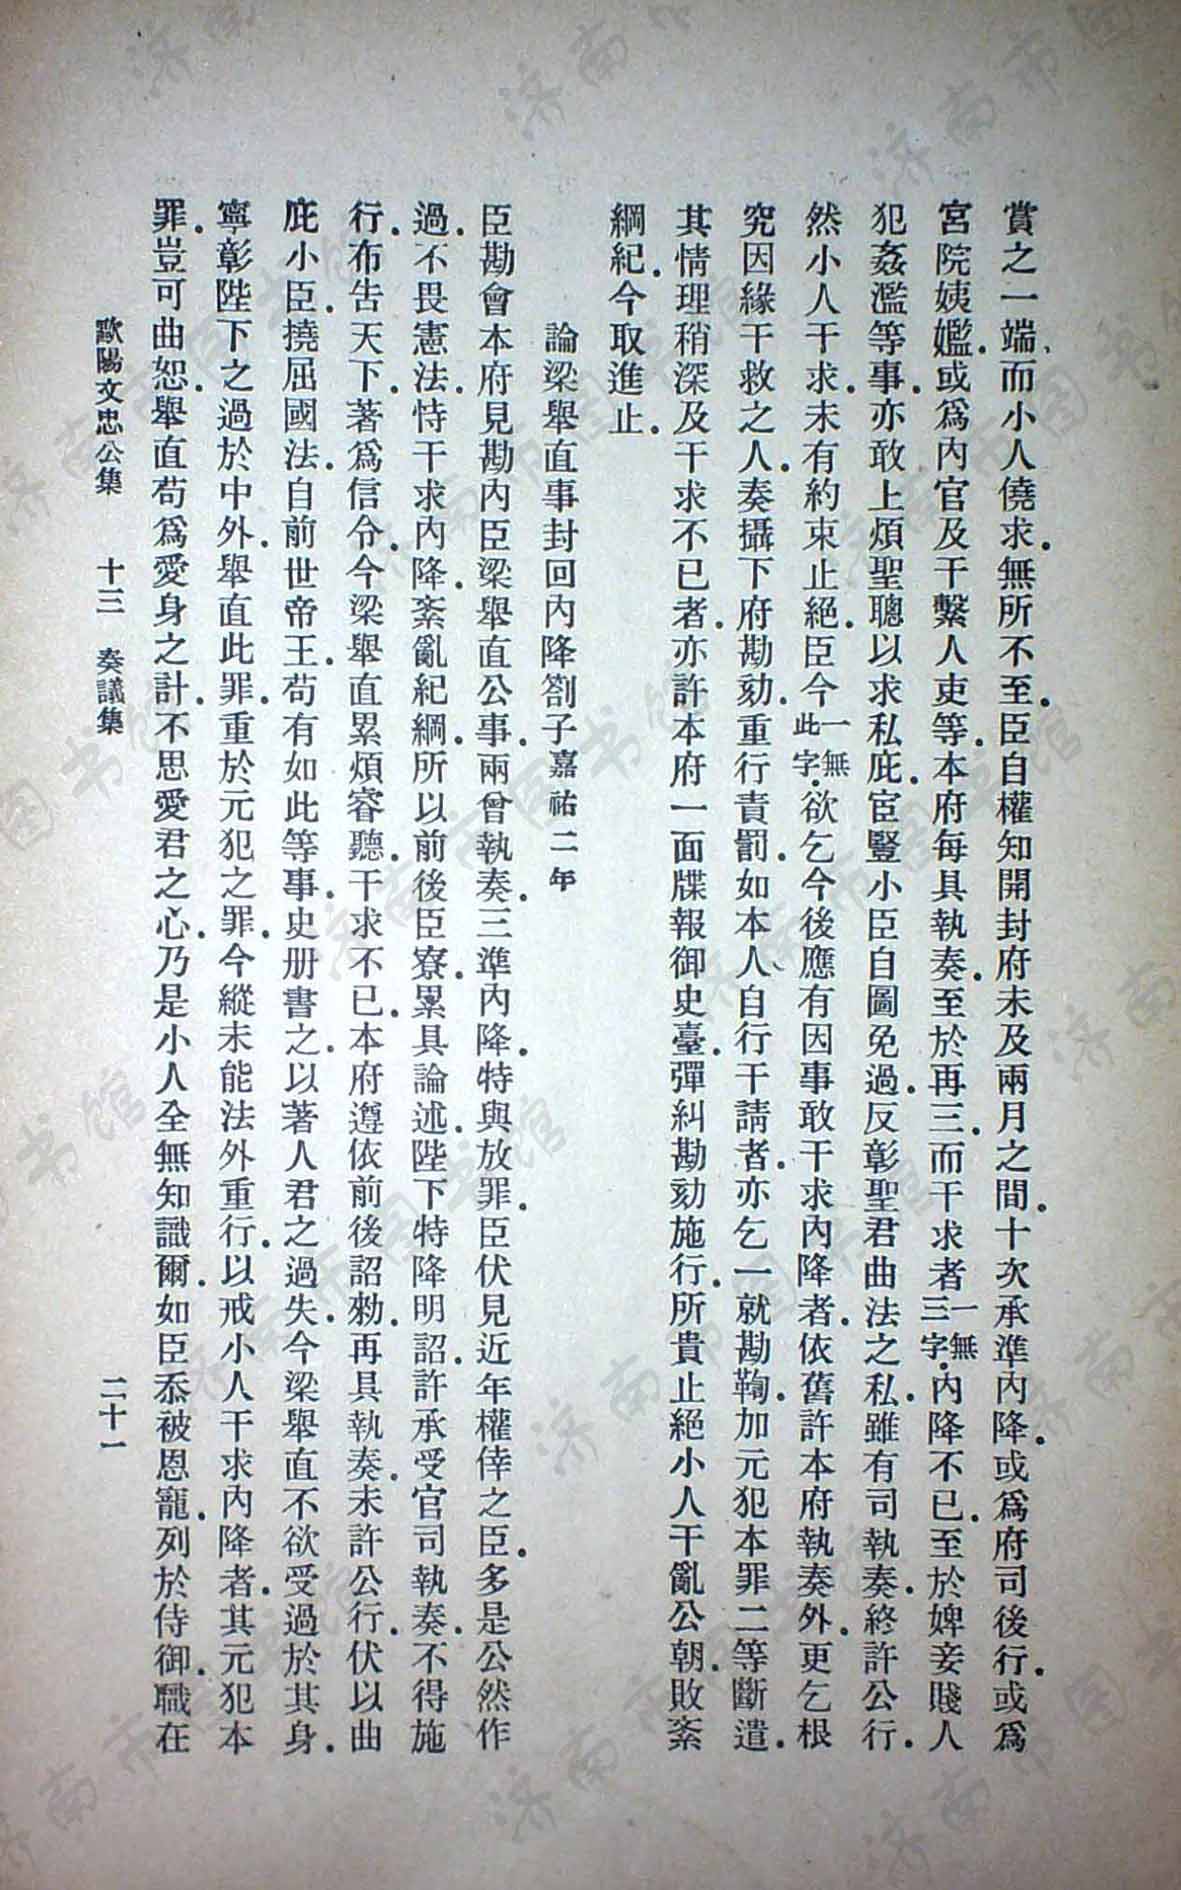 賞之一端、而小人僥求.無所不至.臣自權知開封府未及兩月之間.十次承準內降.或爲府司後行.或爲
宮院姨媼.或爲內官及干繫人吏等.本府每具執奏.至於再三.而干求者一無三字.內降不已.至於婢妾賤人
犯姦濫等事.亦敢上煩聖聰以求私庇.宦豎小臣自圖免過.反彰聖君曲法之私.雖有司執奏.終許公行.
然小人干求.未有約束止絕.臣今一無此字.欲乞今後應有因事敢干求內降者.依舊許本府執奏外.更乞根
究因緣干救之人.奏攝下府勘劾.重行責罰.如本人自行干請者.亦乞一就勘鞫.加元犯本罪二等斷遣.
其情理稍深及干求不已者.亦許本府一面牒報御史臺.彈糾勘劾施行.所貴止絕小人干亂公朝.敗紊
綱紀.今取進止.
論梁舉直事封回內降劄子嘉祐二年
臣勘會本府見勘內臣梁舉直公事.兩曾執奏.三準內降.特與放罪.臣伏見近年權倖之臣.多是公然作
過.不畏憲法.恃干求內降.紊亂紀綱.所以前後臣寮.累具論述.陛下特降明詔.許承受官司執奏.不得施
行.布告天下.著爲信令.今梁舉直累煩睿聽.干求不已.本府遵依前後詔勑.再具執奏.未許公行.伏以曲
庇小臣.撓屈國法.自前世帝王.苟有如此等事.史册書之.以著人君之過失.今梁舉直不欲受過於其身.
寧彰陛下之過於中外.舉直此罪.重於元犯之罪.今縱未能法外重行.以戒小人干求內降者.其元犯本
罪.豈可曲恕.舉直苟爲愛身之計.不思愛君之心.乃是小人全無知識爾.如臣忝被恩寵.列於侍御.職在
歐陽文忠公集 十三 奏議集 二十一
济南市图书馆